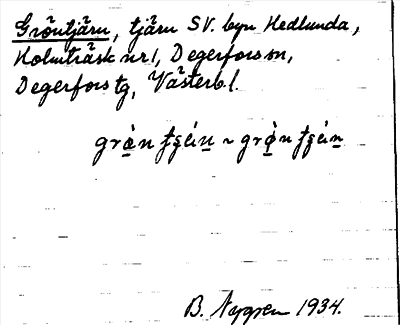 Gröntjärn, tjärn SV. byn Hedlunda,
Holmträsk nr 1, Degerfors sn,
Degerfors tg, Västerb. l.
B. Nygren 1934.